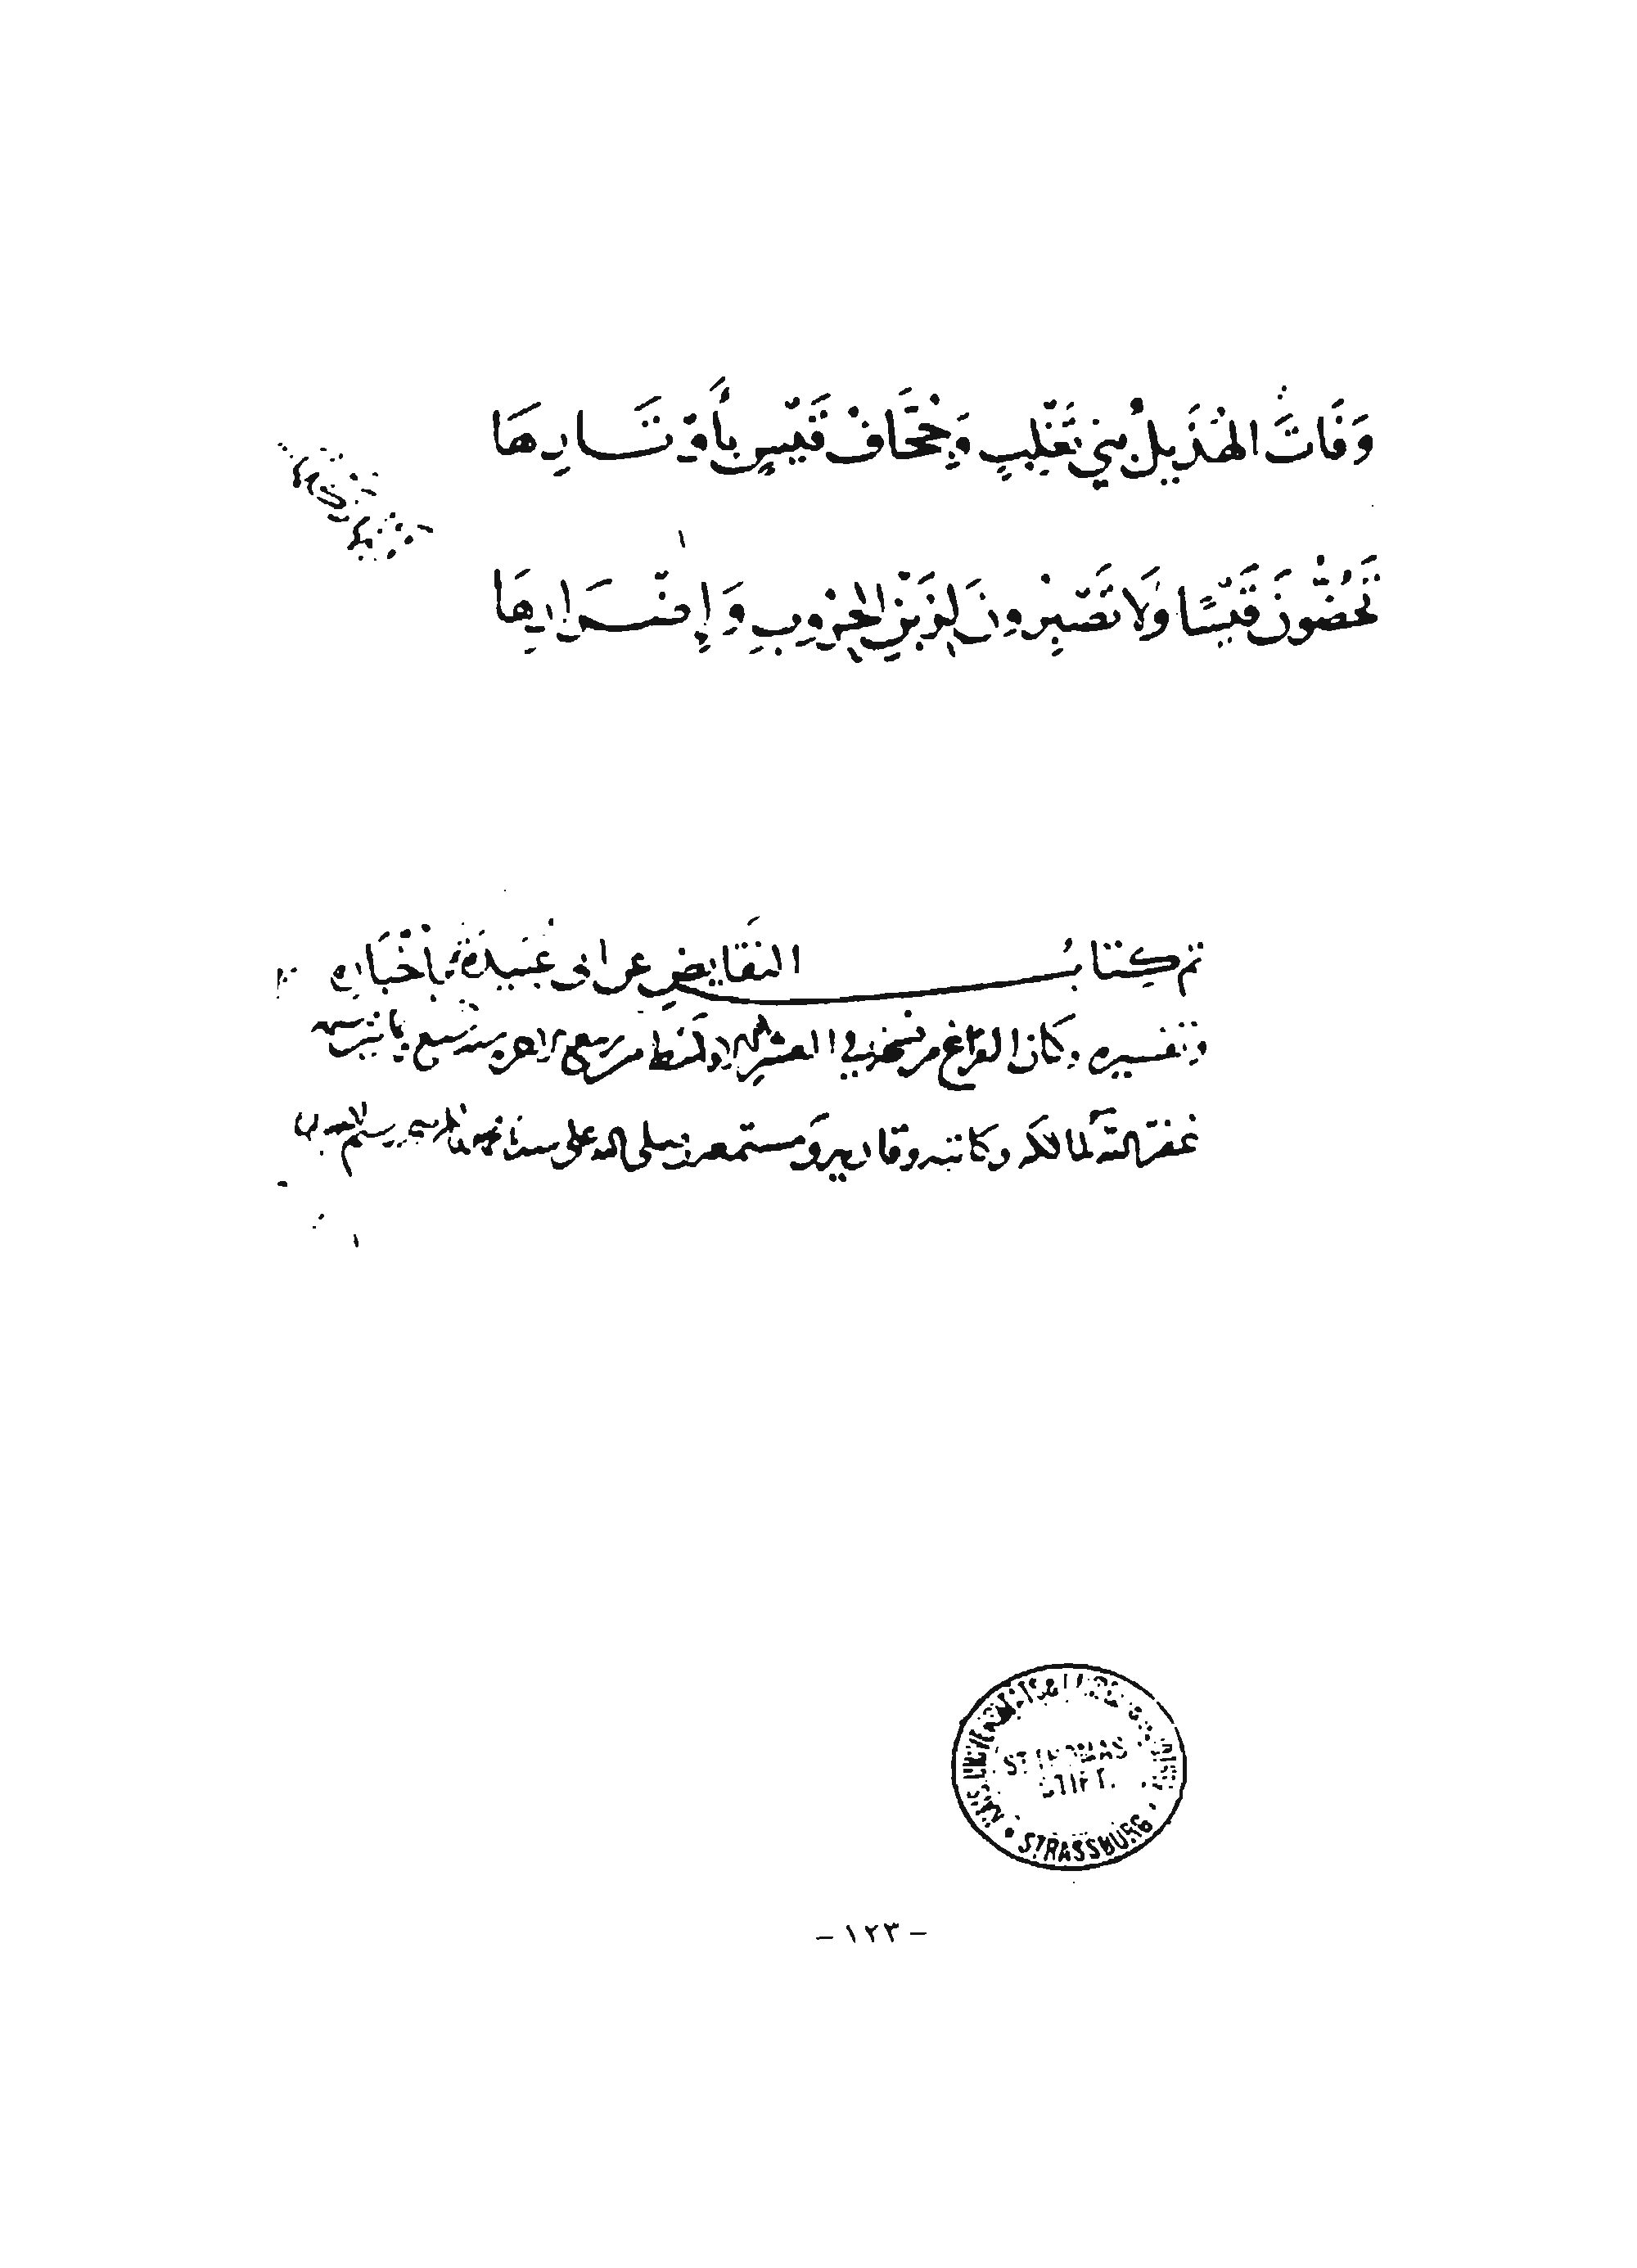 وَفَاتَ الهُذَيلُ بَنِي تَغْلِبٍ وَجَحَّافُ قَيْسٍ بِأَوْتَارِهَا
تَحُضُّونَ قَيْسًا وَلَا تَصْبِرُونَ لِزَبْنِ الحُرُوبِ وَإِضْرَارِهَا
تم كِتَابُ النَقَايِضِ عن ابى عُبَيدَةَ بأَخْبَارِه
وتفسيره وكان الفراغ من نسخه في العشر الاوسط من ربيع الاخره سنه سبع
غفر اللّه لمالكه وكاتبه وقاريه ومستمعه وصلى الله على سيدنا محمد
KAIS. UNIVERSITÄTS
ST. THOMAS
STIFT.
STRASSBURG
- ١٢٣ -